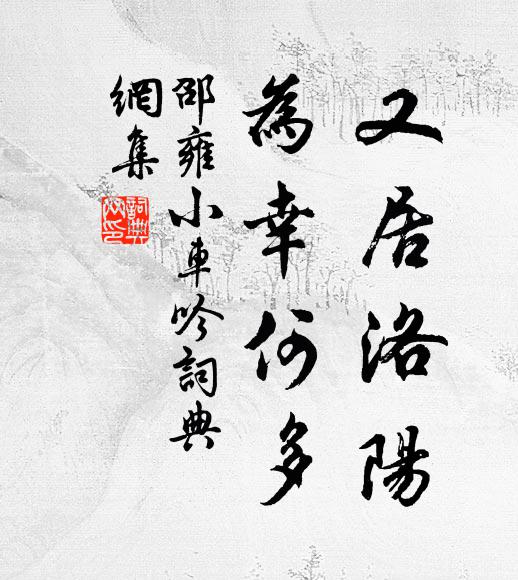 又居洛陽
為幸何多
邵雍小車吟詞典
網集
詞典
网印